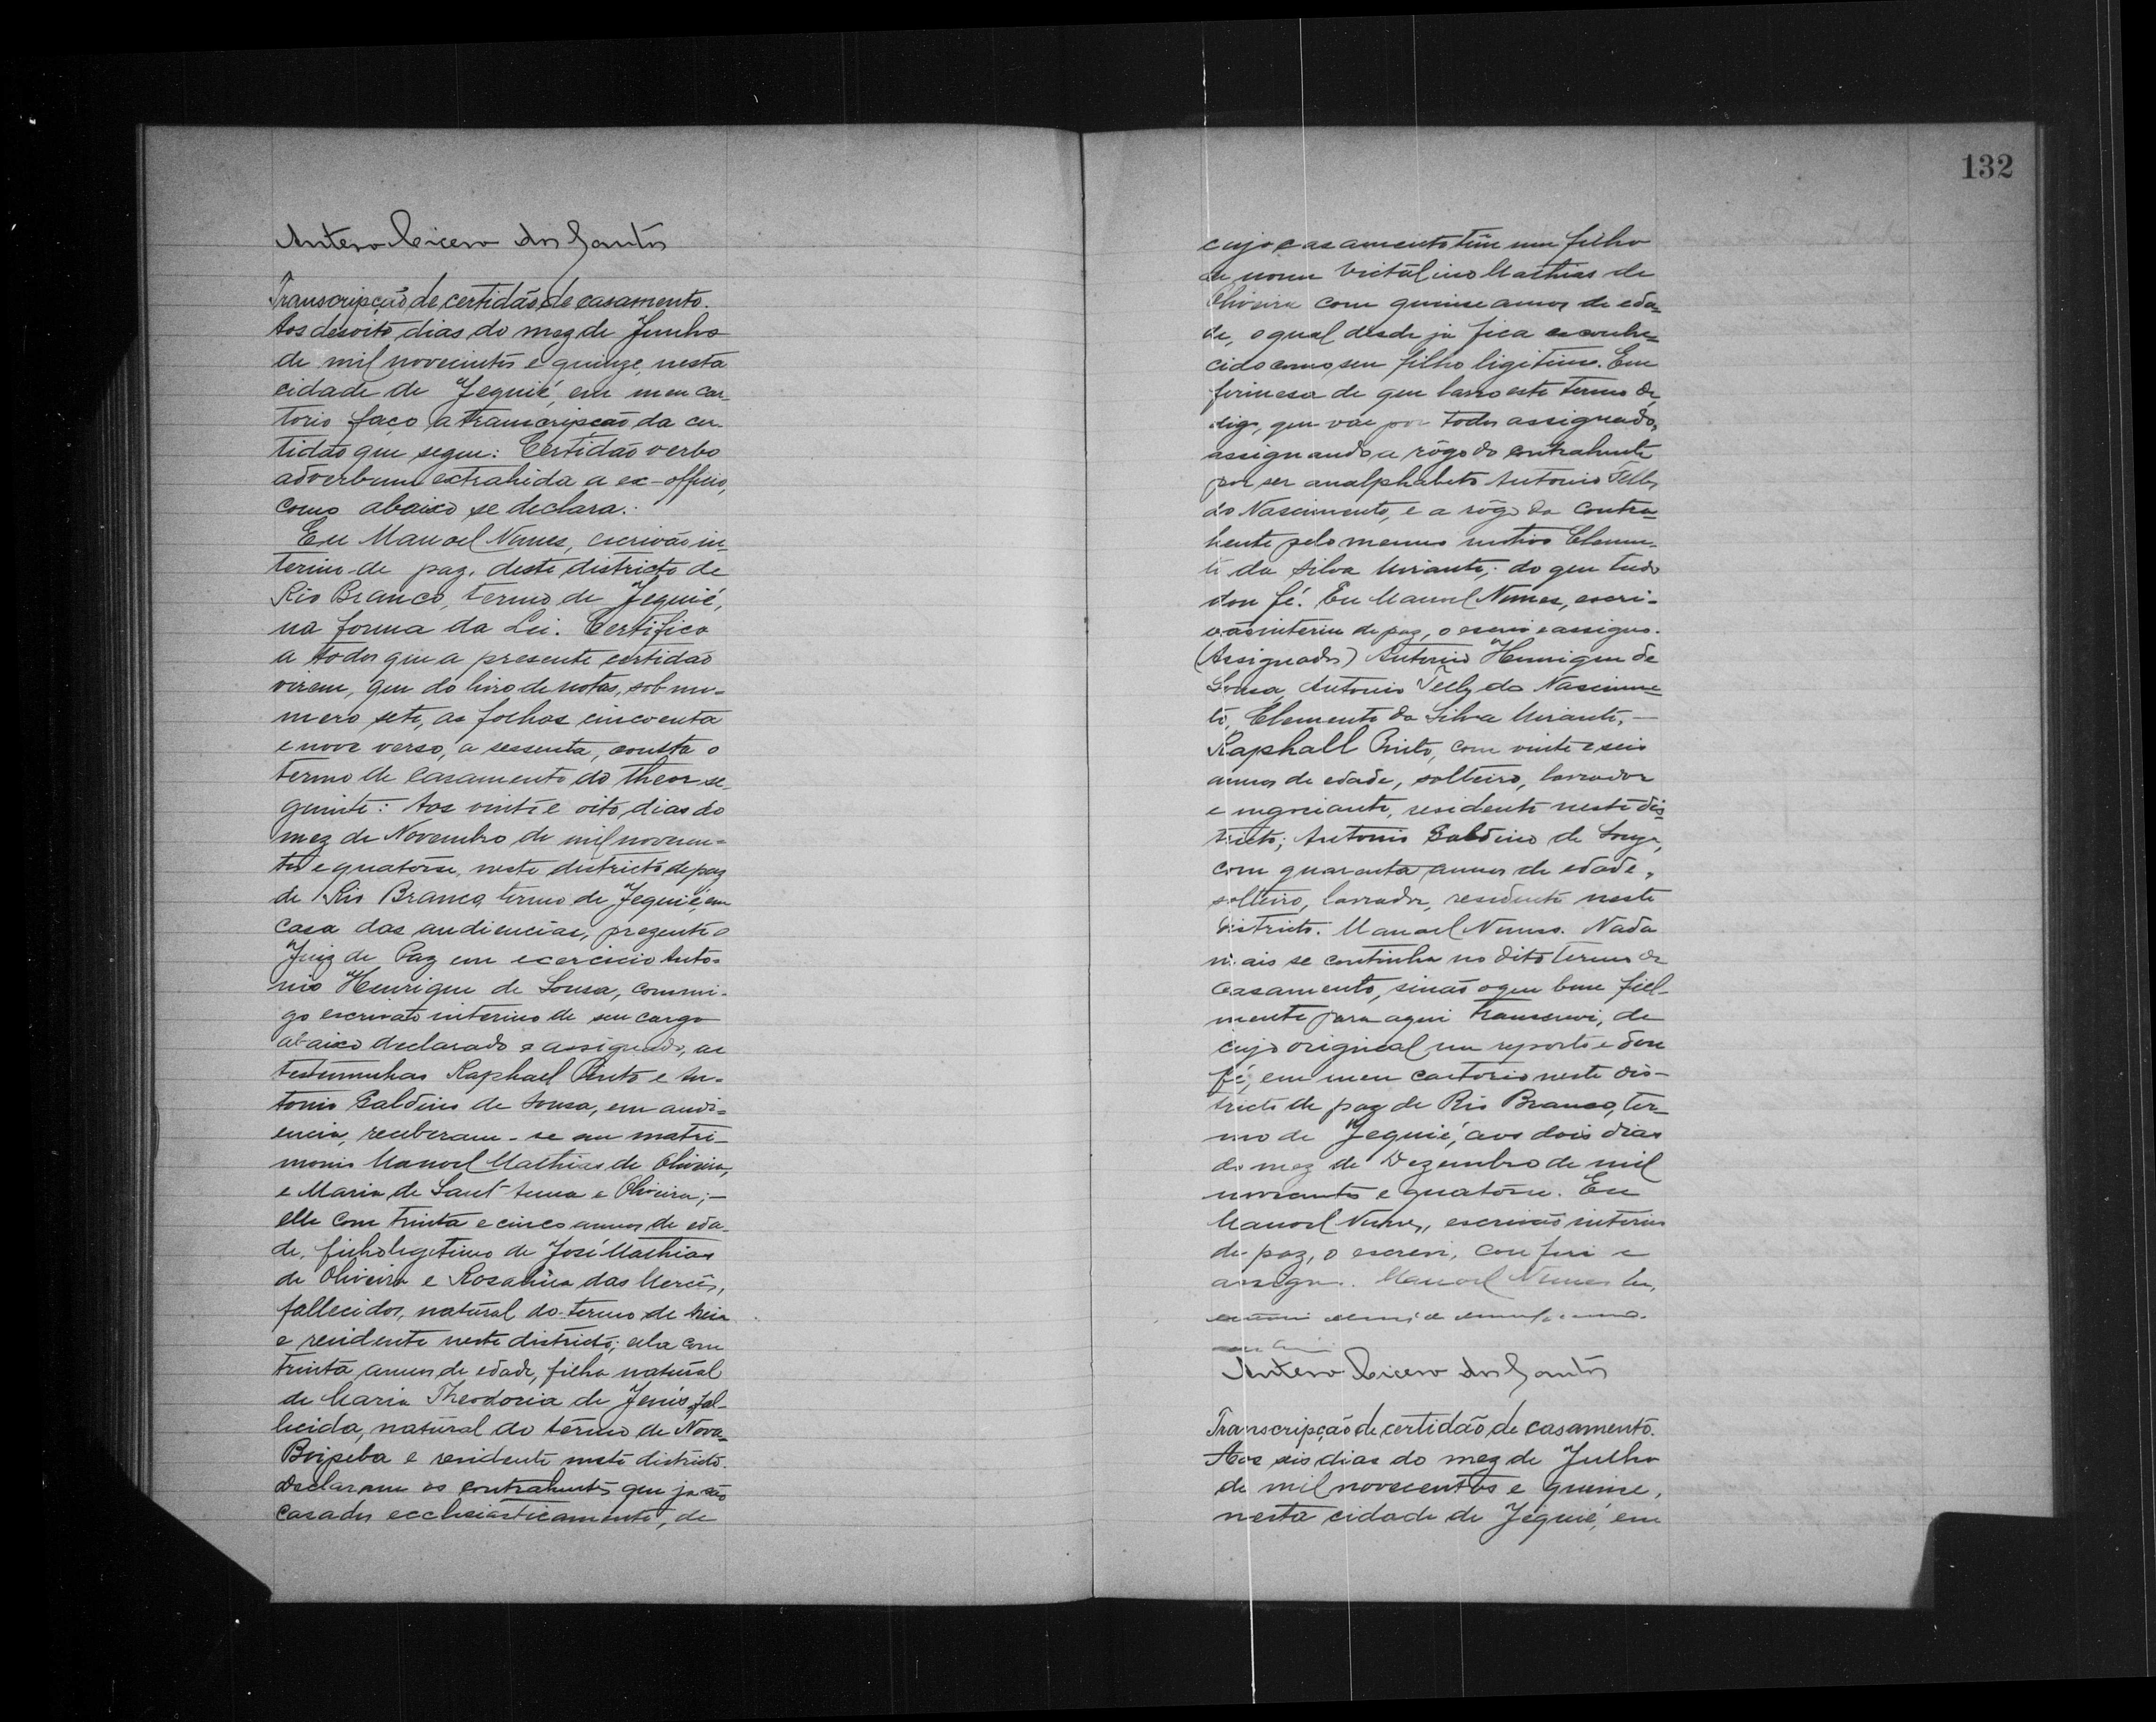 Antero Cicero dos Santos
Transcripção de certidão de casamento.
Aos desoito dias do mez de Junho
de mil novecintos e quinze, nesta
cidade de Jequié, em meu car-
torio faço a transcripção da cer-
tidão que segue: Certidão verbo
adverbum extrahida a ex-officio,
como abaixo se declara:
Eu Manoel Nunes, escrivão in-
terino de paz, deste districto de
Rio Branco, termo de Jequié,
na forma da Lei. Certifico
a todos que a presente certidão
virem, que do livro de notas, sob nu-
mero sete, as folhas cincoenta
e nove verso, a sessenta, consta o
termo de casamento do theor se-
guinte: Aos vinte e oito dias do
mez de Novembro de mil novecen-
tos e quatorse, neste districto de paz
de Rio Branco, termo de Jequié, em
casa das audiencias, prezente o
Juiz de Paz em exercicio Anto-
nio Henrique de Sousa, commi-
go escrivão interino de seu cargo
abaixo declarado e assignado, as
testimunhas Raphael Pinto e An-
tonio Galdino de Sousa, em audi-
encia, receberam-se em matri-
monio Manoel Mathias de Oliveira,
e Maria de Sant-Anna e Oliveira;-
elle com trinta e cinco annos de eda-
de, filho legitimo de José Mathias
de Oliveira e Rosalina das Mercês,
fallecidos, natural do termo de
e residente neste districto; ella com
trinta annos de edade, filha natural
de Maria Theodoria de Jesus, fal-
lecida, natural do termo de Nova-
Boipeba e residente neste districto.
Declararam os contrahentes que ja são
casados ecclesiasticamente, de
132
cujo casamento têm um filho
de nome Victalino Mathias de
Oliveira com quinse annos de eda-
de, o qual desde ja fica reconhe-
cido como seu filho ligitimo. Em
firmesa de que lavro este termo de,
digo, que vae por todos assignado,
assignando a rôgo do contrahente
por ser analphabeto Antonio Telles
do Nascimento, e a rôgo da contra-
hente pelo mesmo motivo Clemen-
te da Silva Mirante; do que tudo
dou fé. Eu Manoel Nunes, escri-
vão interino de paz, o escrevi e assigno.
(Assignados) Antonio Henrique de
Sousa, Antonio Telles do Nascimen-
to, Clemente da Silva Mirante, —
Raphall Pinto, com vinte e seis
annos de edade, solteiro, lavrador
e negociante, residente neste dis-
tricto; Antonio Galdino de Souza,
com quarenta annos de edade,
solteiro, lavrador, residente neste
districto. Manoel Nunes. Nada
mais se continha no dito termo de
casamento, sinão o que bem fiel-
mente para aqui transcrevi, de
cujo original me reporto e dou
fé, em meu cartorio neste dis-
tricto de paz de Rio Branco, ter-
mo de Jequié, aos dois dias
do mez de Dezembro de mil
novecentos e quatorse. Eu
Manoel Nunes, escrivão interino
de paz, o escrevi, conferi e
assigno. Manoel Nunes
Antero Cicero dos Santos
Transcripção de certidão de casamento.
Aos seis dias do mez de Julho
de mil novecentos e quinse,
nesta cidade de Jequié, em